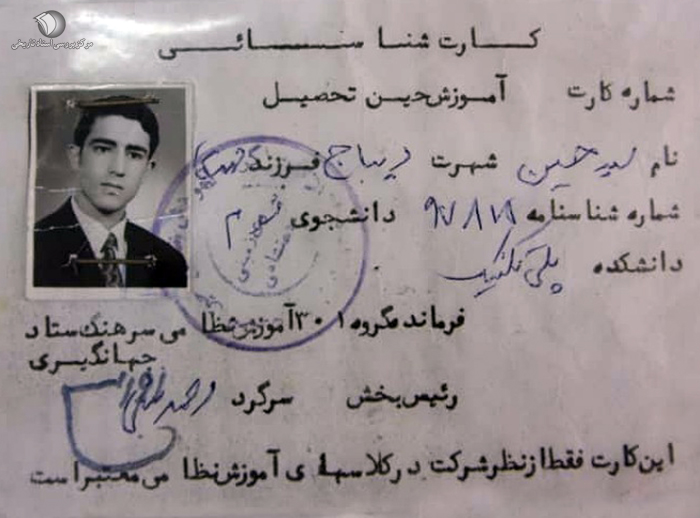 مرکز بررسی اسناد تاریخی
کارت شناسائی
شماره کارت آموزش حین تحصیل
نام سید حسین شهرت دیباج فرزند
شماره شناسنامه دانشجوی
دانشکده پلی تکنیک
فرمانده گروه ۳۰۱ آموزش نظا می سرهنگ ستاد
جهانگیری
رئیس بخش سرگرد
این کارت فقط از نظر شرکت در کلاسها ی آموزش نظا می معتبر است